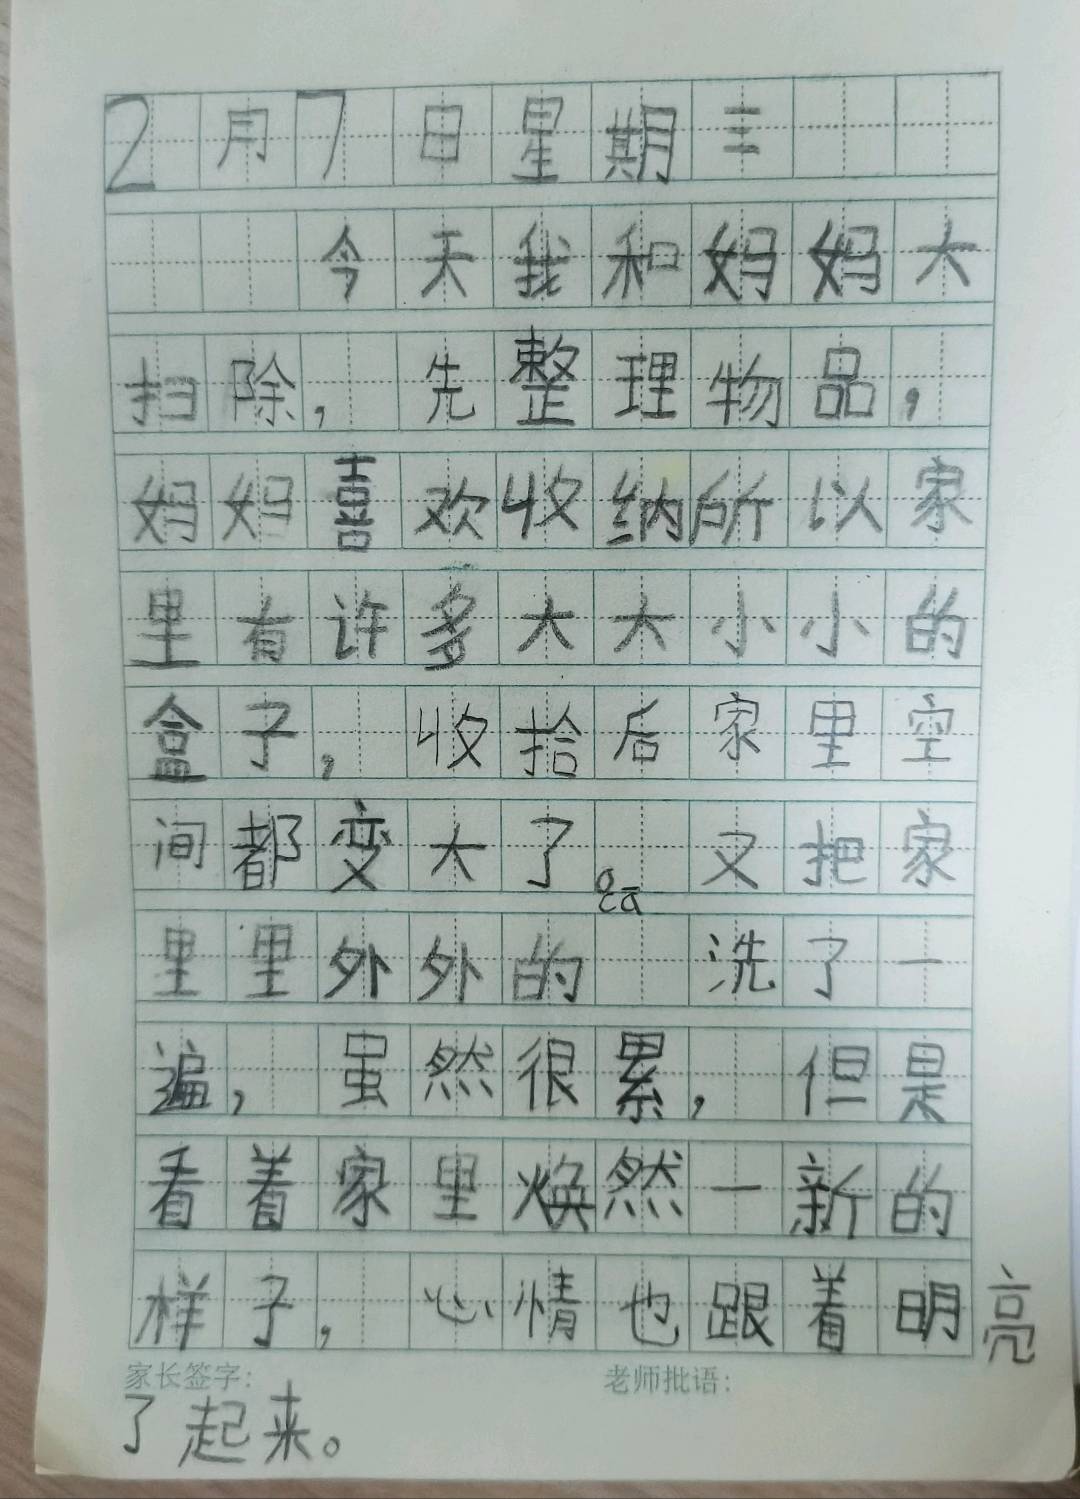 2月7日星期三
今天我和妈妈大
扫除，先整理物品，
妈妈喜欢收纳所以家
里有许多大大小小的
盒子，收拾后家里空
间都变大了。又把家
cā
里里外外的 洗了一
遍，虽然很累，但是
看着家里焕然一新的
样子，心情也跟着明亮
家长签字： 老师批语：
了起来。